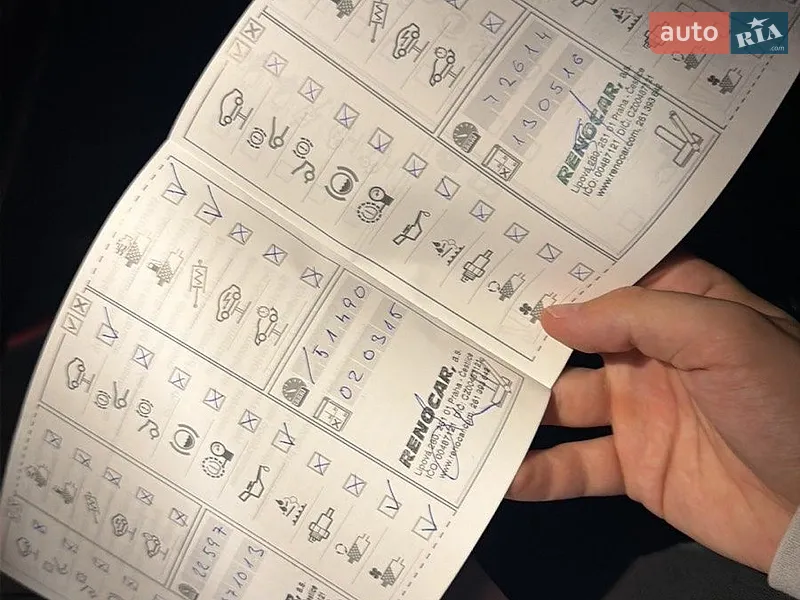 auto RIA
.com
72614
130516
RENOCAR, a.s.
Lipová 280, 251 01 Praha - Čestlice
IČO: 00487121 / DIČ: CZ00487121
www.renocar.com, 261 393
51490
020315
RENOCAR, a.s.
Lipová 280, 251 01 Praha - Čestlice
IČO: 00487121 DIČ: CZ00487121
www.renocar.com, 261 393
22597
171013